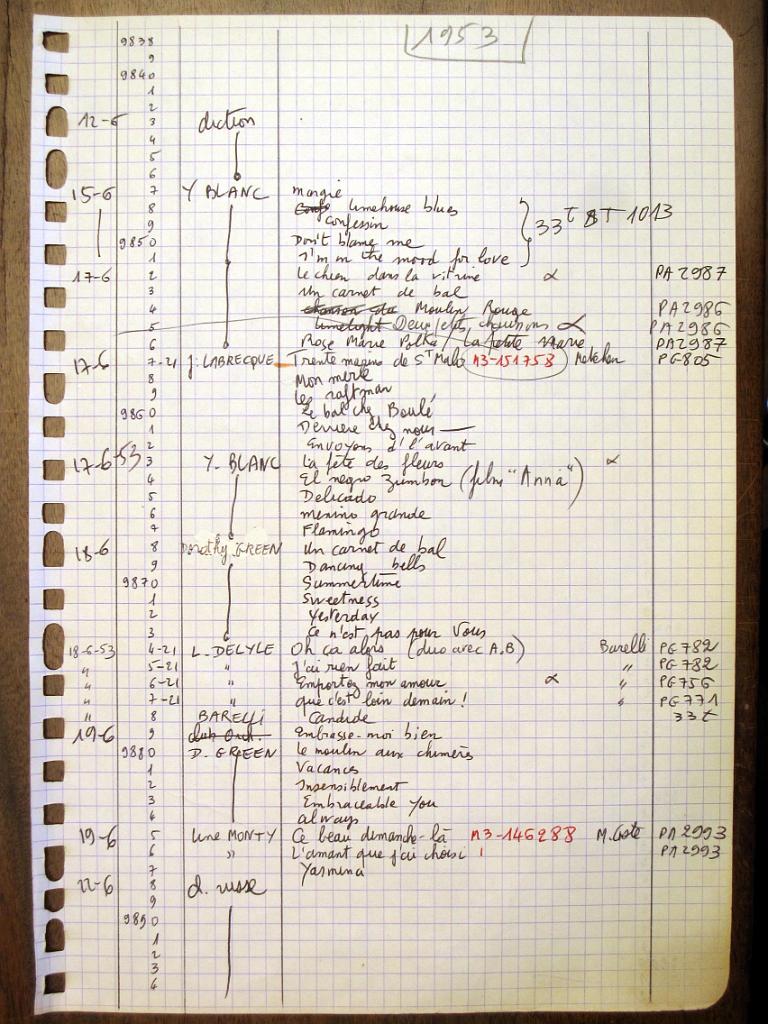 1953
9838
9
9840
1
2
12-6 3 diction
4
5
6
15-6 7 Y BLANC margie
8 limehouse blues } 33T ST 1013
9 Confessin
9850 Don't blame me
1 I'm in the mood for love
17-6 2 Le chien dans la vitrine α PA 2987
3 Un carnet de bal
4 chanson du Moulin Rouge PA 2986
5 limelight Deux petits chaussons α PA 2986
6 Rose Marie Polka / La petite marie PA 2987
17-6 7-21 J. LABRECQUE Trente marins de St Malo M3-151758 PG 805
8 Mon merle
9 les raftman
9860 Le bal chez Boulé
1 Derriere chez nous
2 Envoyons d'l'avant
17-6-53 3 Y. BLANC La fête des fleurs α
4 El negro zumbon (film "Anna")
5 Delicado
6 menino grande
7 Flamingo
18-6 8 Dorothy GREEN Un carnet de bal
9 Dancing bells
9870 Summertime
1 Sweetness
2 Yesterday
3 Ce n'est pas pour Vous
18-6-53 4-21 L. DELYLE Oh ça alors (duo avec A.B) Barelli PG 782
" 5-21 " J'ai rien fait " PG 782
" 6-21 " Emportez mon amour α " PG 756
" 7-21 " que c'est loin demain! " PG 771
" 8 BARELLI Candide 33t
19-6 9 Embrasse-moi bien
9880 D. GREEN Le moulin aux chimères
1 Vacances
2 Insensiblement
3 Embraceable You
4 always
19-6 5 Line MONTY Ce beau dimanche-là M3-146288 M. Coste PA 2993
6 " L'amant que j'ai choisi PA 2993
7 Yasmina
22-6 8 d. russe
9
9890
1
2
3
4